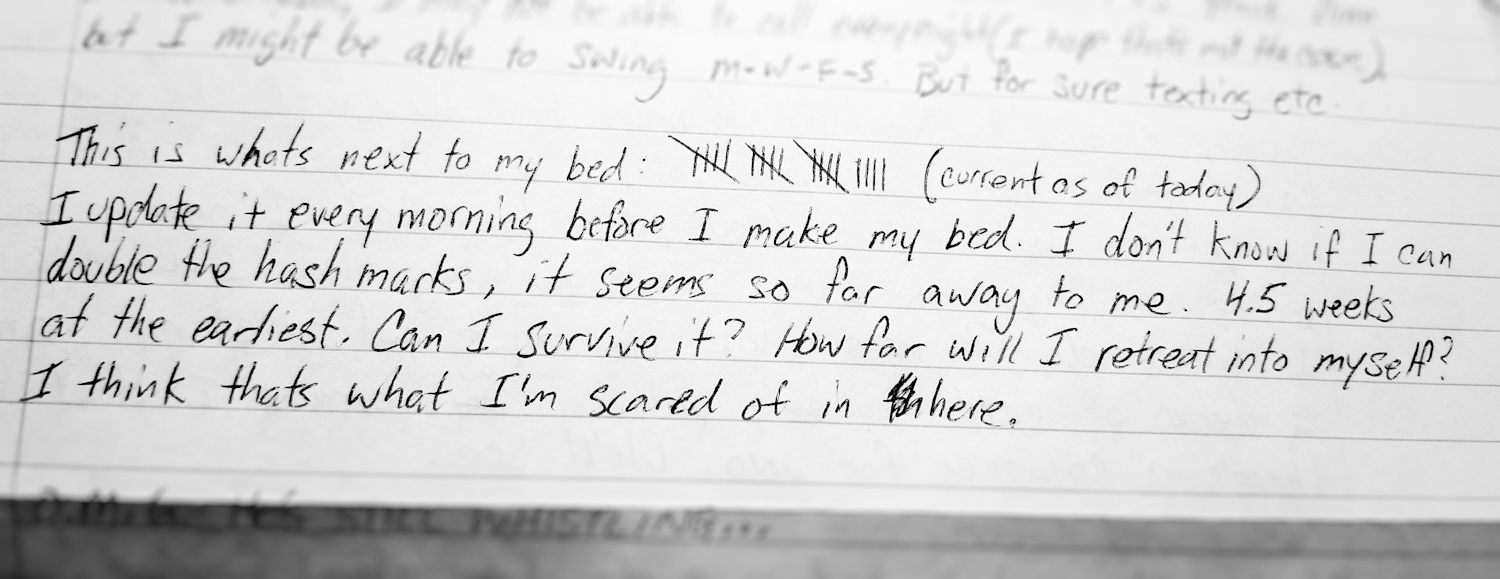 be able to call everynight (I hope thats not the case)
but I might be able to swing M-W-F-S. But for sure texting etc.
This is whats next to my bed: 卌 卌 卌 |||| (current as of today)
I update it every morning before I make my bed. I don't know if I can
double the hash marks, it seems so far away to me. 4.5 weeks
at the earliest. Can I survive it? How far will I retreat into myself?
I think thats what I'm scared of in here.
He's STILL WHISTLING...